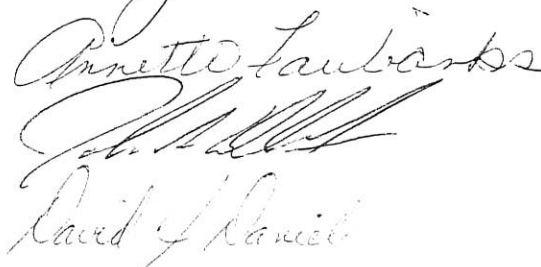 Annette Fairbanks
John
David J Daniel